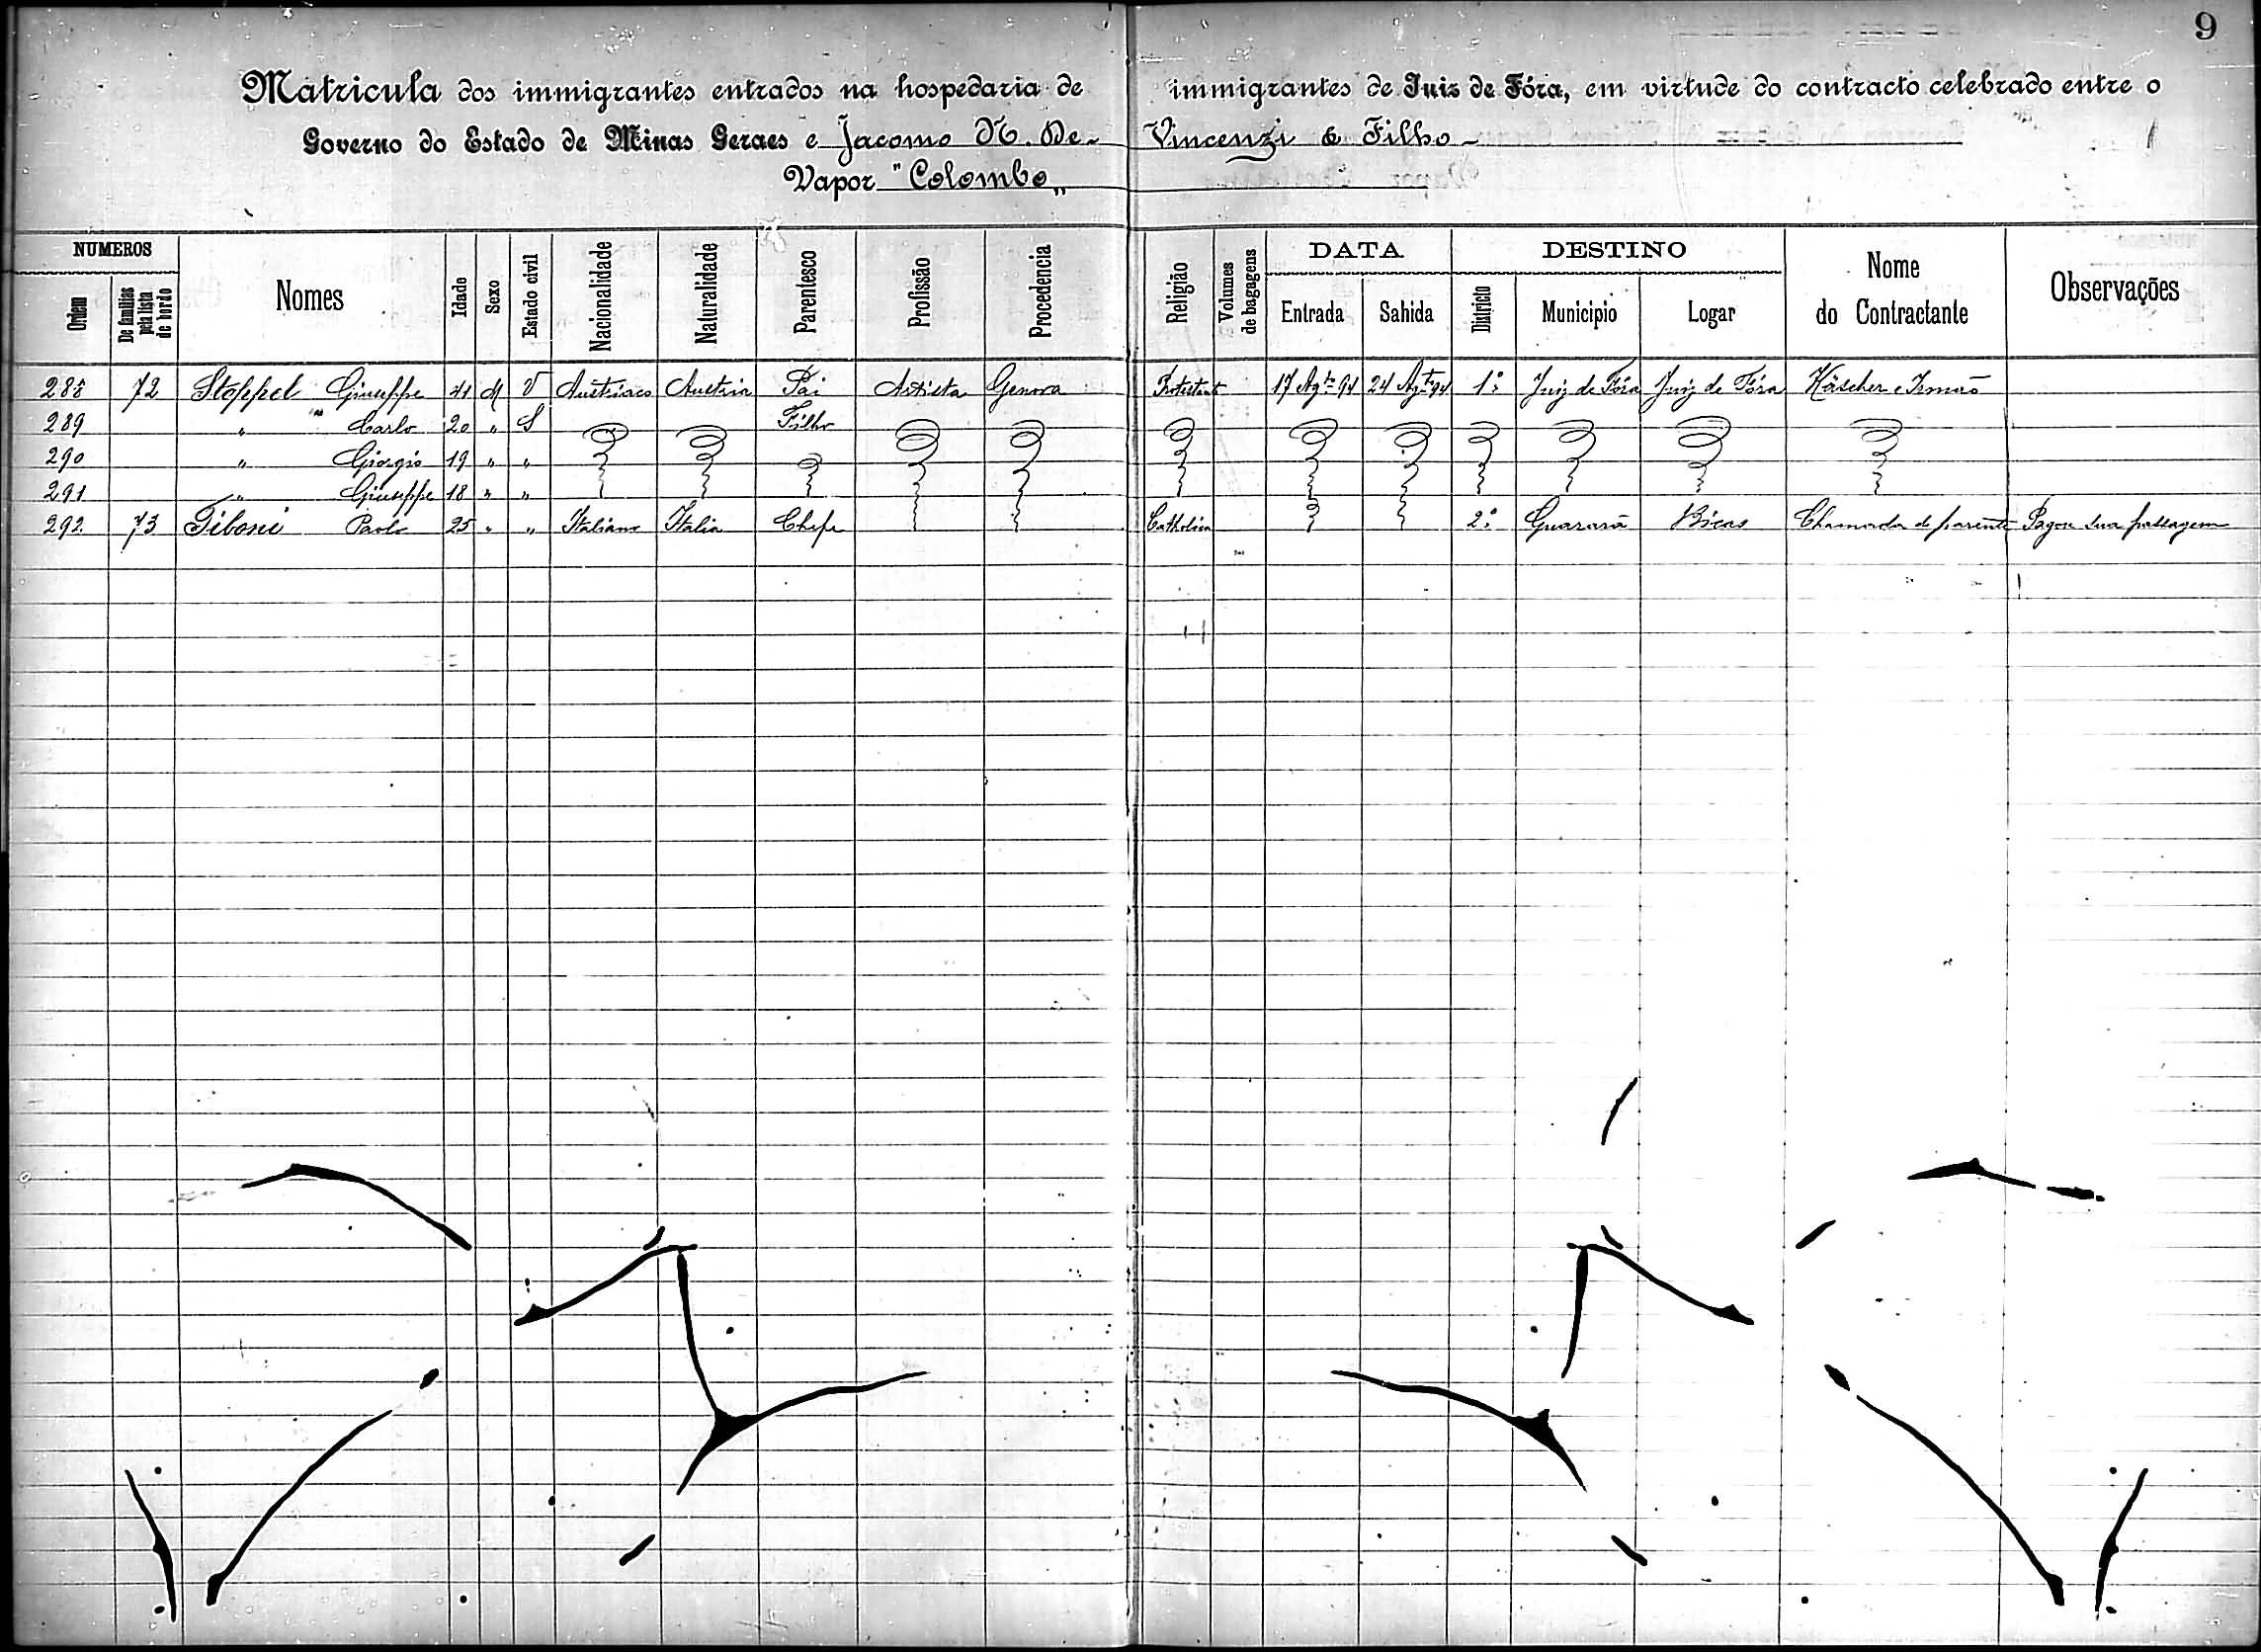 9
Matricula dos immigrantes entrados na hospedaria de immigrantes de Juiz de Fóra, em virtude do contracto celebrado entre o
Governo do Estado de Minas Geraes e Jacomo N. De- Vincenzi & Filho
Vapor "Colombo"
NUMEROS Nomes Idade Sexo Estado civil Nacionalidade Naturalidade Parentesco Profissão Procedencia Religião Volumes de bagagens DATA DESTINO Nome do Contractante Observações
Ordem De familias pela lista de bordo Entrada Sahida Districto Municipio Logar
288 72 Stoppel Giuseppe 41 M V Austriaco Austria Pai Artista Genova Protestante 17 Agto 94 24 Agto 94 1º Juiz de Fóra Juiz de Fóra Irmão
289 " " Carlo 20 " S Filho
290 " Giorgio 19 " "
291 " Giuseppe 18 " "
292 73 Paolo 25 " " Italiano Italia Chefe Catholica 2º Guarará Bicas Chamada de parente Pagou sua passagem